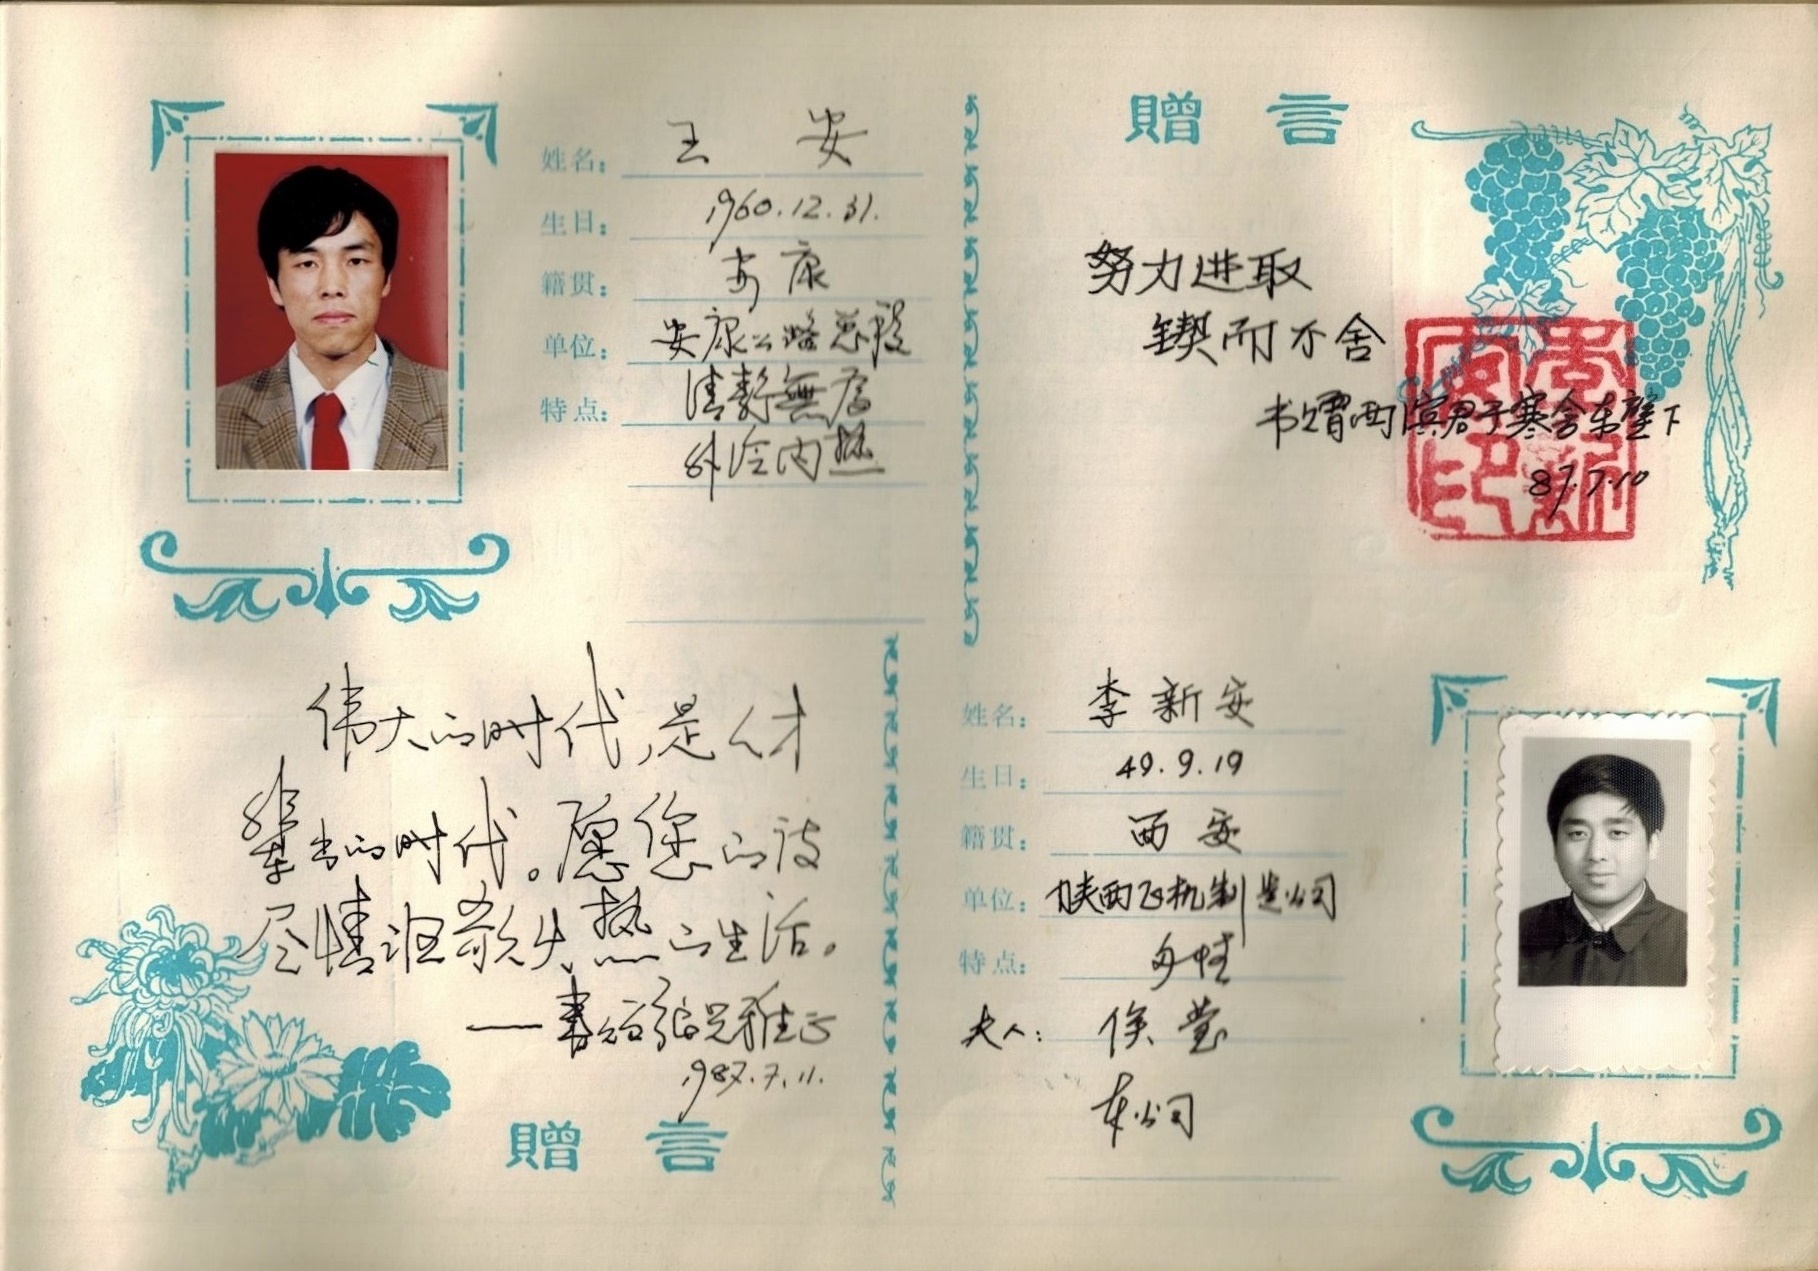 姓名： 王 安
生日： 1960.12.31.
籍贯： 安康
单位： 安康公路总段
特点： 清静無为
外冷内热
贈 言
努力进取
锲而不舍
书赠西滨君于寒舍东壁下
87.7.10
伟大的时代，是人才
辈出的时代。愿您的诗
尽情讴歌火热的生活。
雅正
1987.7.11.
贈 言
姓名： 李新安
生日： 49.9.19
籍贯： 西安
单位： 陕西飞机制造公司
特点：
夫人： 侯莹
本公司